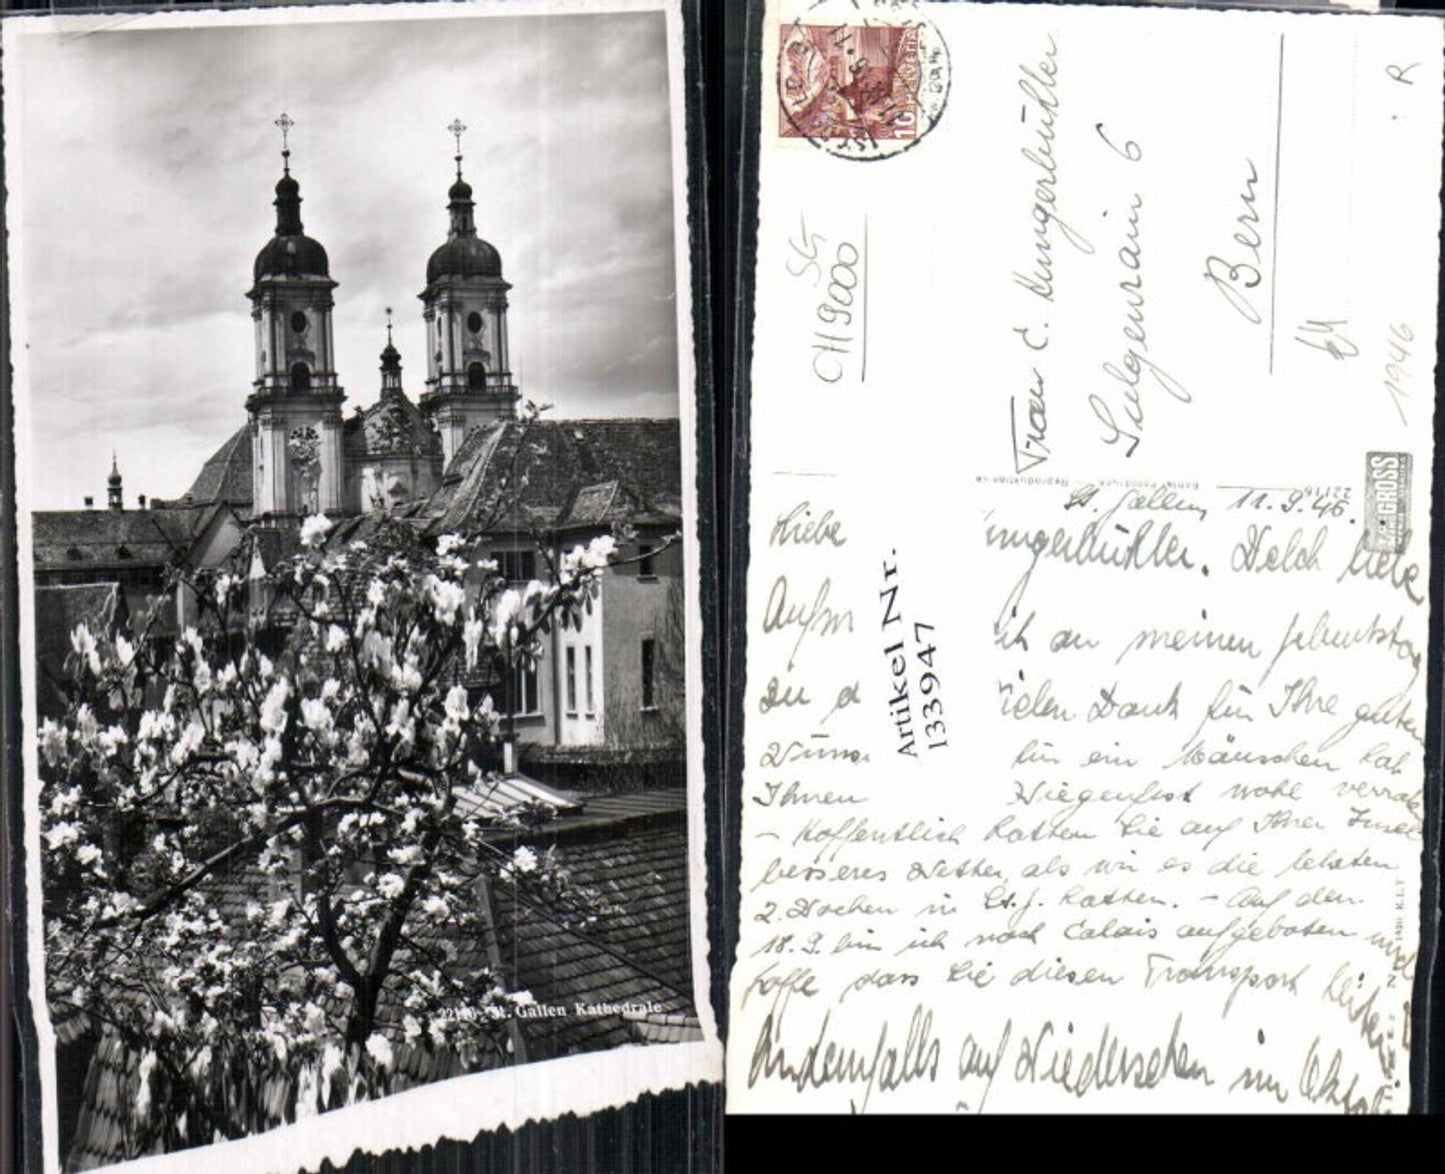 22116 St. Gallen Kathedrale
HELVETIA
10
SG
CH 9000
Frau C. Hungerbühler
Sulgenrain 6
Bern
R
1946
GROSS
22116
St. Gallen, 11.9.46.
Artikel Nr.
133947
Liebe ungerbühler. Welch liebe
Aufm it an meinen Geburtstag
zu d ielen Dank für Ihre guten
Wüns ein Mäuschen hat
Ihnen Wiegenfest wohl verraten
– Hoffentlich hatten Sie auf Ihrer Insel
besseres Wetter, als wir es die letzten
2 Wochen in St.G. hatten. – Auf den
18.9. bin ich nach Calais aufgeboten und
hoffe dass Sie diesen Transport leiten
Andernfalls auf Wiedersehen im